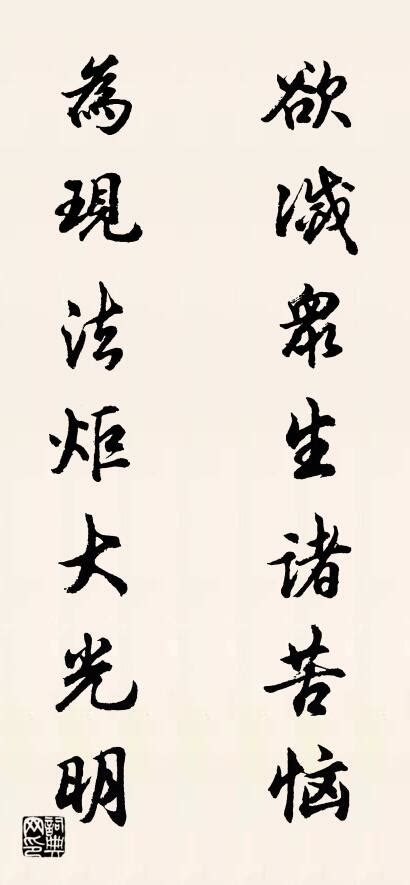 欲滅衆生諸苦恼
為現法炬大光明
詞典网印